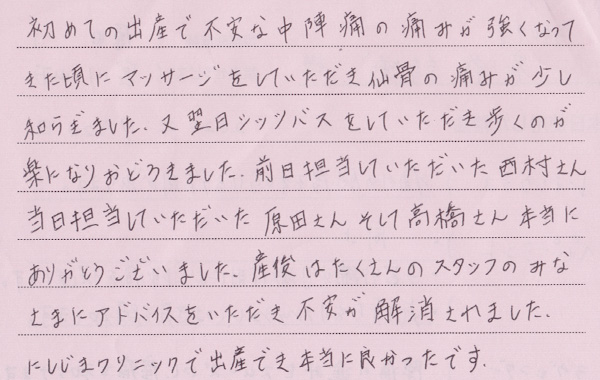 初めての出産で不安な中陣痛の痛みが強くなって
きた頃にマッサージをしていただき仙骨の痛みが少し
和らぎました、又翌日シッツバスをしていただき歩くのが
楽になりおどろきました、前日担当していただいた西村さん
当日担当していただいた原田さんそして高橋さん本当に
ありがとうございました、産後はたくさんのスタッフのみな
さまにアドバイスをいただき不安が解消されました、
にしじまクリニックで出産でき本当に良かったです.